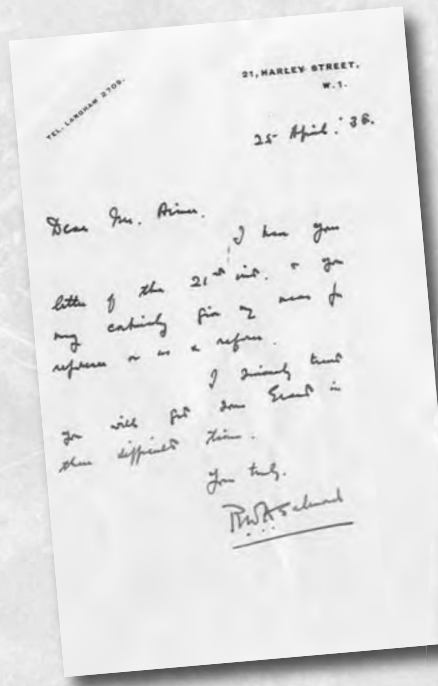 TEL. LANGHAM 2706.
21, HARLEY STREET,
W.1.
25 April. '38.
Dear Mr.
I have your
letter of the 21st inst. & you
may certainly give my name for
reference or as a referee.
I sincerely trust
you will get some Grant in
these difficult times.
Yours truly.